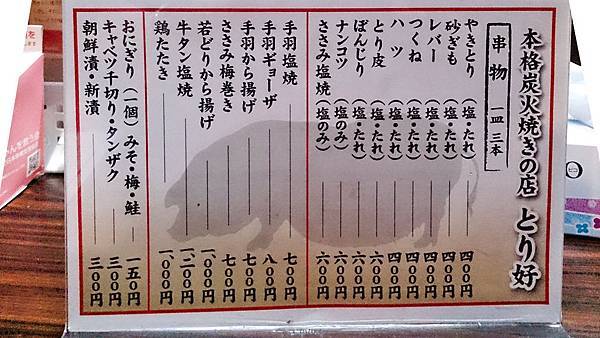 本格炭火焼きの店 とり好
串物 一皿三本
やきとり（塩・たれ） 四〇〇円
砂ぎも（塩・たれ） 四〇〇円
レバー（塩・たれ） 四〇〇円
つくね（塩・たれ） 四〇〇円
ハツ（塩・たれ） 四〇〇円
とり皮（塩・たれ） 六〇〇円
ぼんじり（塩・たれ） 六〇〇円
ナンコツ（塩のみ） 六〇〇円
ささみ塩焼（塩のみ） 六〇〇円
手羽塩焼 七〇〇円
手羽ギョーザ 八〇〇円
手羽から揚げ 七〇〇円
ささみ梅巻き 七〇〇円
若どりから揚げ 一、〇〇〇円
牛タン塩焼 一、二〇〇円
鶏たたき 一、〇〇〇円
おにぎり（一個）みそ・梅・鮭 一五〇円
キャベツ千切り・タンザク 三〇〇円
朝鮮漬・新漬 三〇〇円